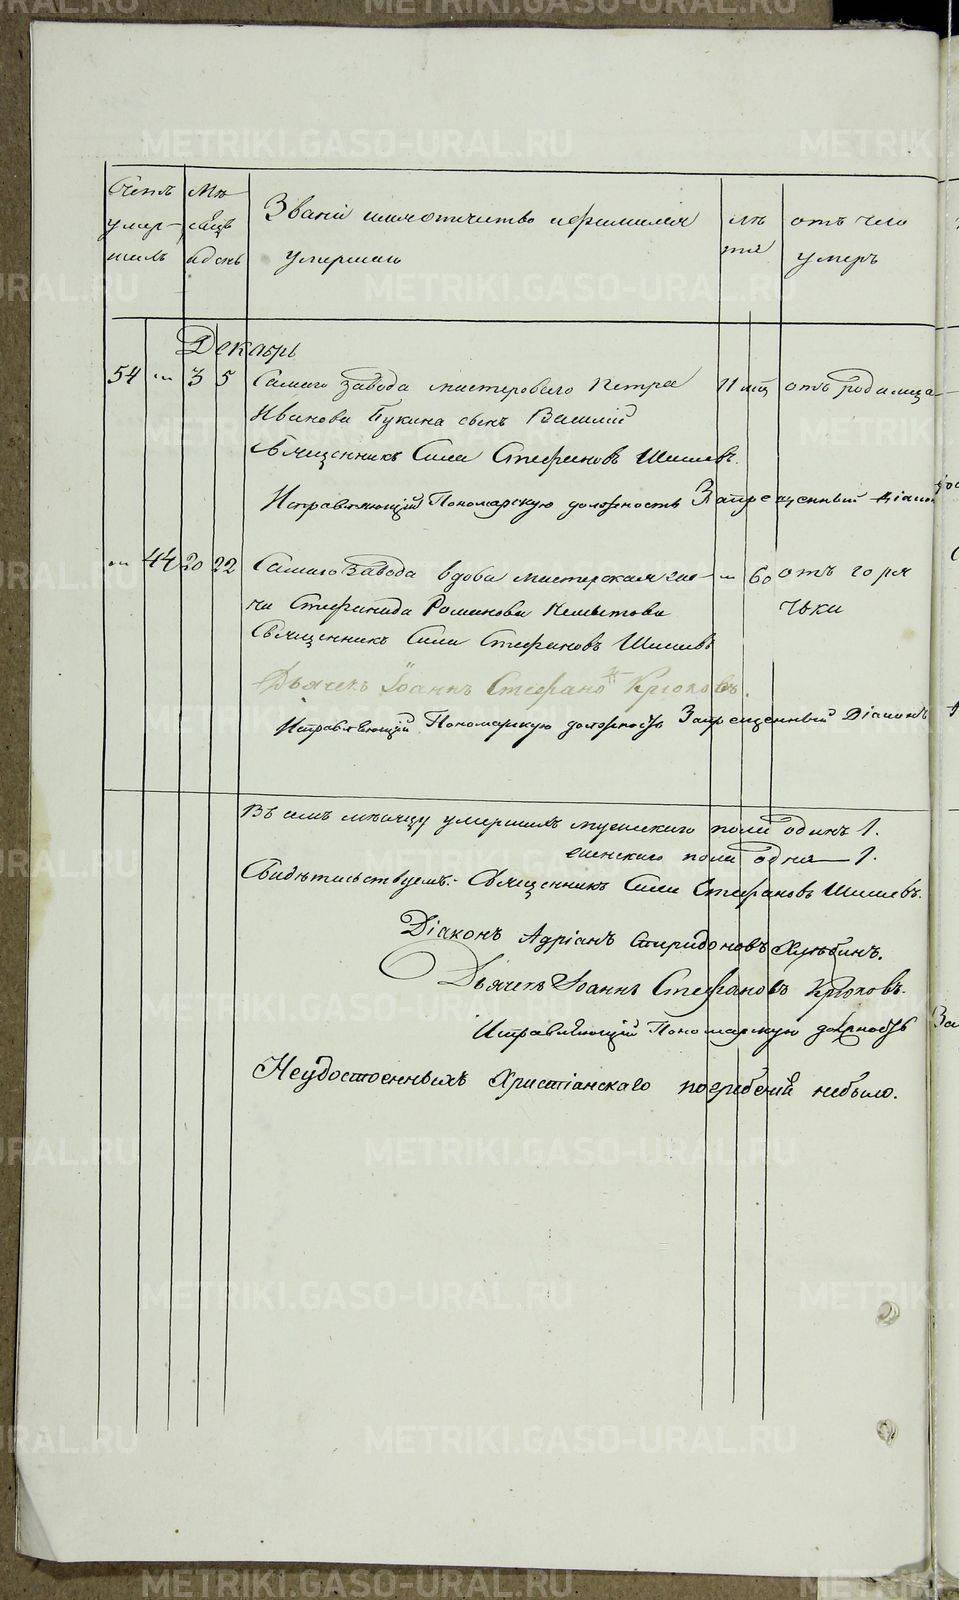 Счетъ умер-шихъ
Мѣсяцъ и день
Званіе имя отчество и фамилія умершаго
лѣта
отъ чего умеръ
Декабрь
54 " 3 5 Самаго завода мастероваго Петра 11 мц отъ родимца
Иванова сынъ Василій
Священникъ Сила Стефановъ Шишевъ.
Исправляющій Пономарскую должность Запрещенный Діакон
" 44 20 22 Самаго завода вдова мастерская " 60 отъ горя
Стефанида Романова чьки
Священникъ Сила Стефановъ Шишевъ
Дьячекъ Іоаннъ Стефановъ Крюковъ.
Исправляющій Пономарскую должность Запрещенный Діаконъ
Въ семъ мѣсяцѣ умершихъ мужескаго пола одинъ 1.
женскаго пола одна 1.
Свидѣтельствуемъ: Священникъ Сила Стефановъ Шишевъ.
Діаконъ Адріанъ Спиридоновъ Хлѣбинъ.
Дьячекъ Іоаннъ Стефановъ Крюковъ.
Исправляющій Пономарскую должность
Неудостоенныхъ Христіанскаго погребенія небыло.
METRIKI.GASO-URAL.RU